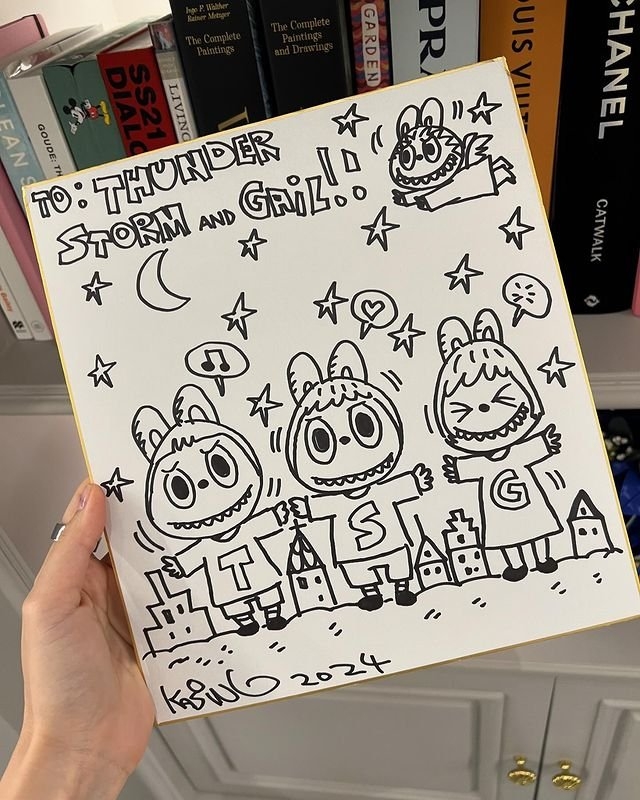 TO: THUNDER
STORM AND GAIL!!
T
S
G
KASING 2024
Ingo F. Walther
Rainer Metzger
The Complete
Paintings
The Complete
Paintings
and Drawings
GARDEN
PRA
LOUIS VUITT
CHANEL
CATWALK
SS21
DIALO
LIVING
GOUDE: Th
LEAN S